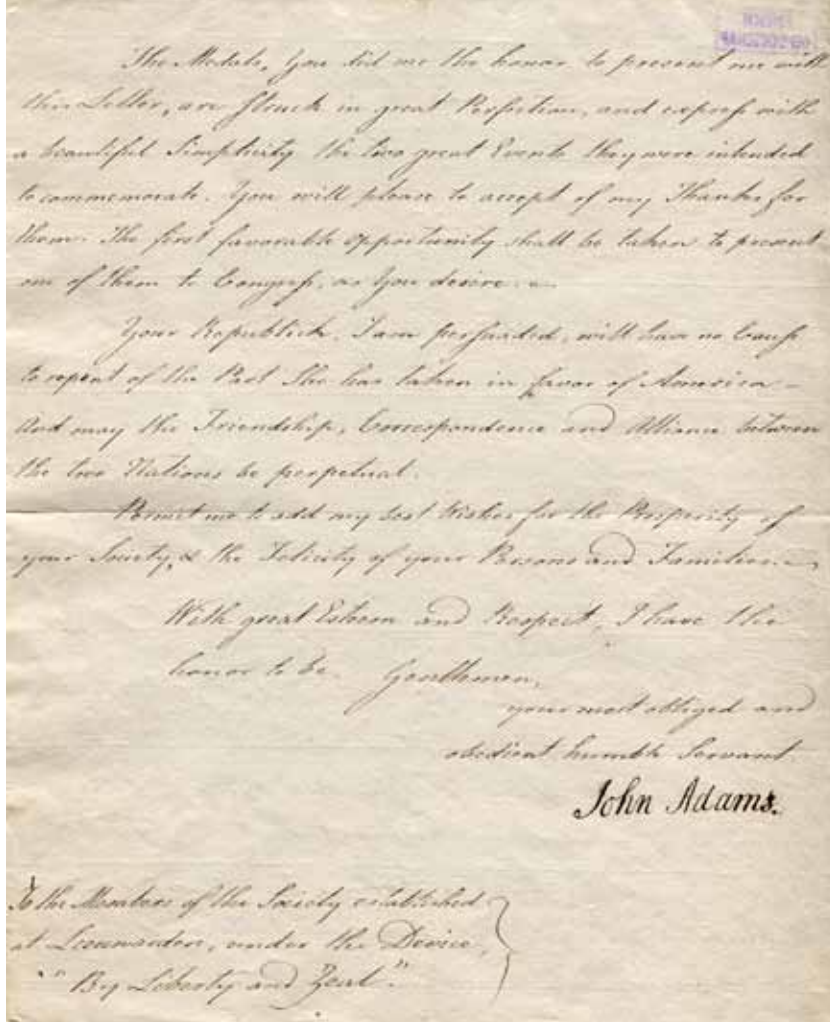 The Medals, you did me the honor to present me with
this Letter, are struck in great Perfection, and express with
a beautiful Simplicity the two great Events they were intended
to commemorate. You will please to accept of my Thanks for
them. The first favorable opportunity shall be taken to present
one of them to Congress, as you desire.
Your Republick, I am persuaded, will have no Cause
to repent of the Part She has taken in favor of America —
And may the Friendship, Correspondence and Alliance between
the two Nations be perpetual.
Permit me to add my best Wishes for the Prosperity of
your Society, & the Felicity of your Persons and Families.
With great Esteem and Respect, I have the
honor to be. Gentlemen,
your most obliged and
obedient humble Servant
John Adams.
To the Members of the Society established
at Leeuwarden, under the Device,
"By Liberty and Zeal".